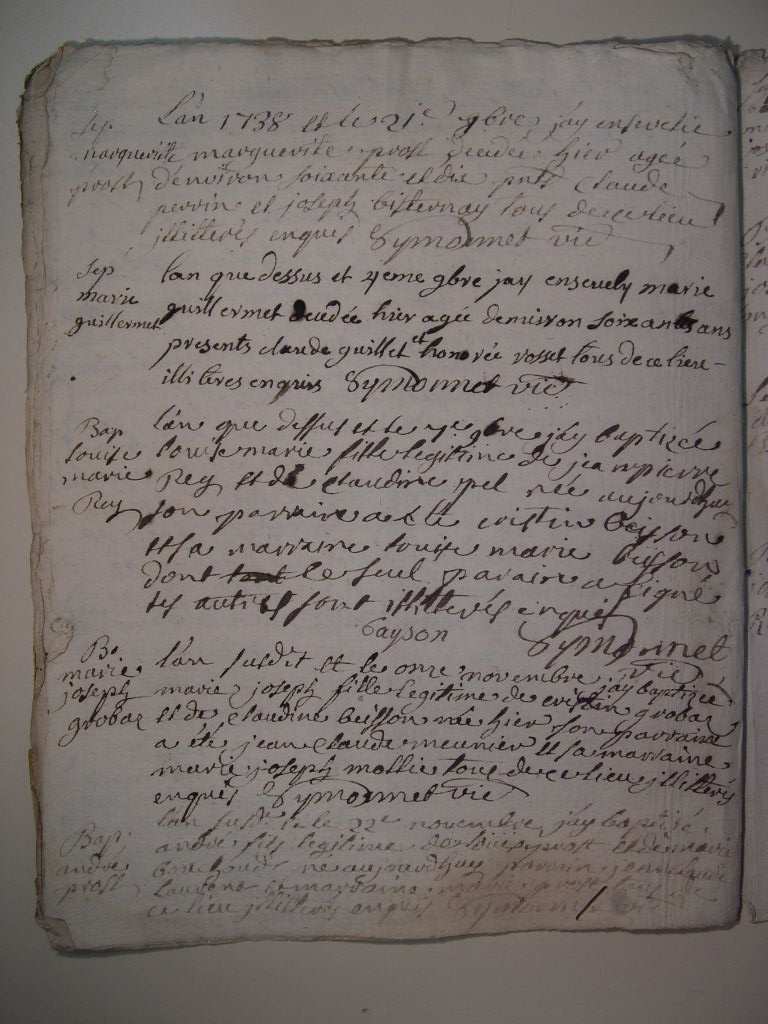 Sep margueritte prost
L'an 1738 et le 21e 9bre j'ay ensevelie
marguerite prost decedée hier agée
d'environ soixante et dix pnts Claude
perrin et joseph bisternay tous de ce lieu
illitterés enquis Symonnet vic
Sep marie guillermet
lan que dessus et 4eme 9bre jay ensevely marie
guillermet decedée hier agée demviron soixante ans
presents claude guillet et honorée rosset tous de ce lieu
illiteres enquis Symonnet vic
Bap Louise marie Rey
l'an que dessus et le 9bre j'ay baptizée
Louise marie fille legitime de jeanpierre
Rey et de claudine pel née aujourdhuy
son parrain a eté cristin beisson
et sa marraine louise marie buisson
dont le seul parain a signé
les autres sont illitterés enquis
bayson Symonnet
vic
B. marie joseph grobaz
l'an susdit et le onze novembre jay baptizée
marie joseph fille legitime de cristin grobaz
et de claudine beisson née hier son parraine
a été jean claude meunier et sa marraine
marie joseph mollie tous de ce lieu illitterés
enquis Symonnet vic
Bap andre prost
lan susd et le 22e novembre j'ay baptisé
andre fils legitime de prost et de marie
né aujourdhuy parrain jean claude
et marraine marie prost tous de
ce lieu illitterés enquis Symonnet vic